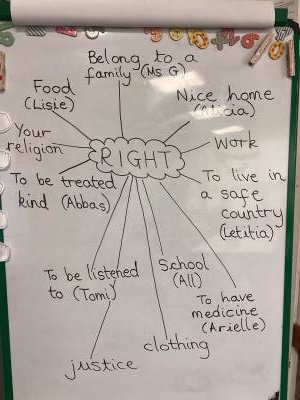 Belong to a
family (Ms G)
Food
(Lisie)
Nice home
(Alicia)
Your
religion
RIGHT
Work
To be treated
kind (Abbas)
To live in
a safe
country
(Letitia)
To be listened
to (Tomi)
School
(All)
To have
medicine
(Arielle)
clothing
justice